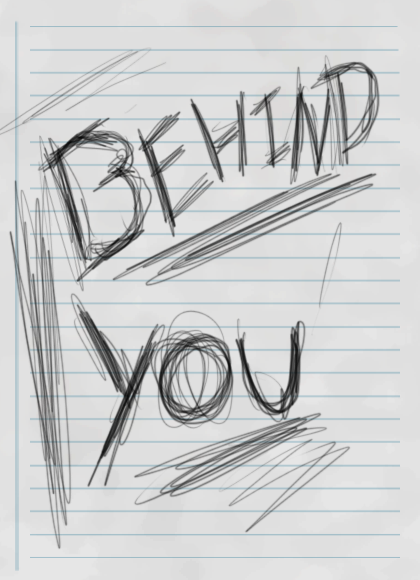 BEHIND
YOU